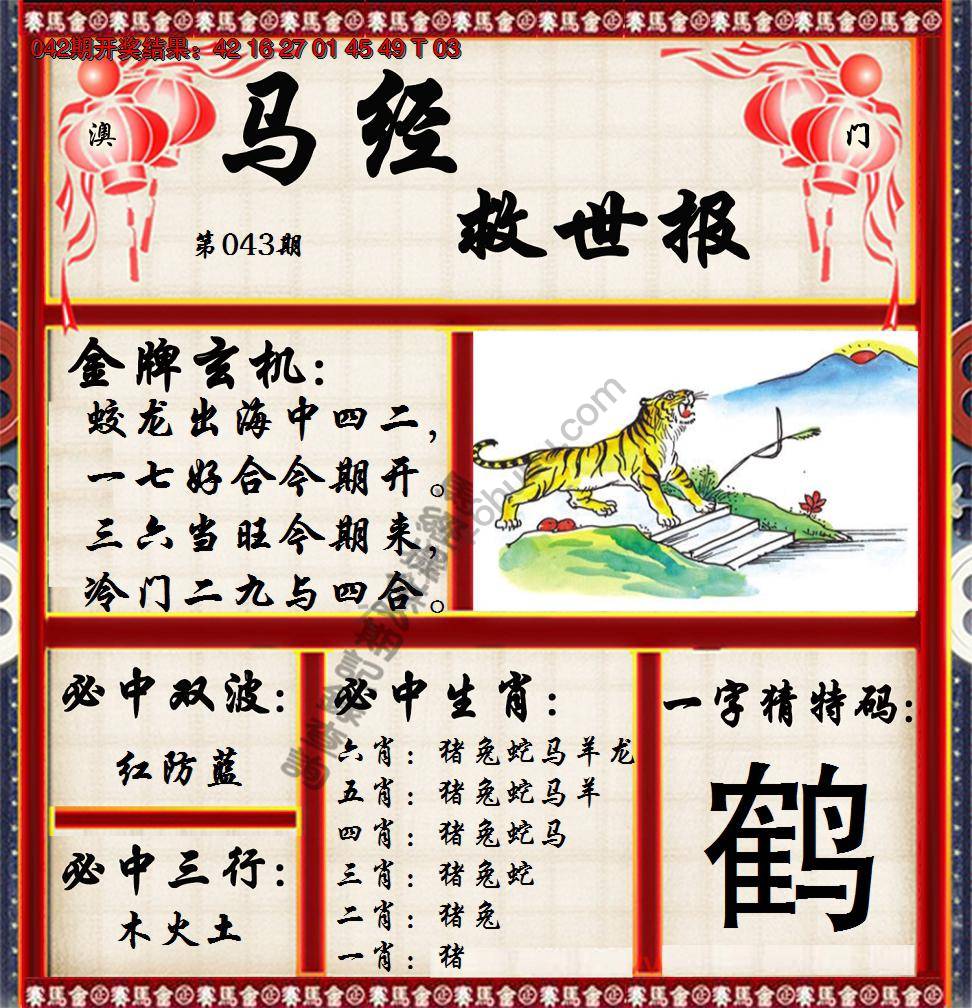 042期开奖结果：42 16 27 01 45 49 T 03
澳 门
马经
救世报
第043期
金牌玄机：
蛟龙出海中四二，
一七好合今期开。
三六当旺今期来，
冷门二九与四合。
必中双波：
红防蓝
必中三行：
木火土
必中生肖：
六肖：猪兔蛇马羊龙
五肖：猪兔蛇马羊
四肖：猪兔蛇马
三肖：猪兔蛇
二肖：猪兔
一肖：猪
一字猜特码：
鹤